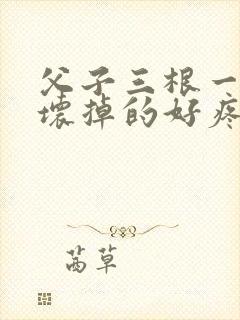 父子三根一
壞掉的好疼
茜草